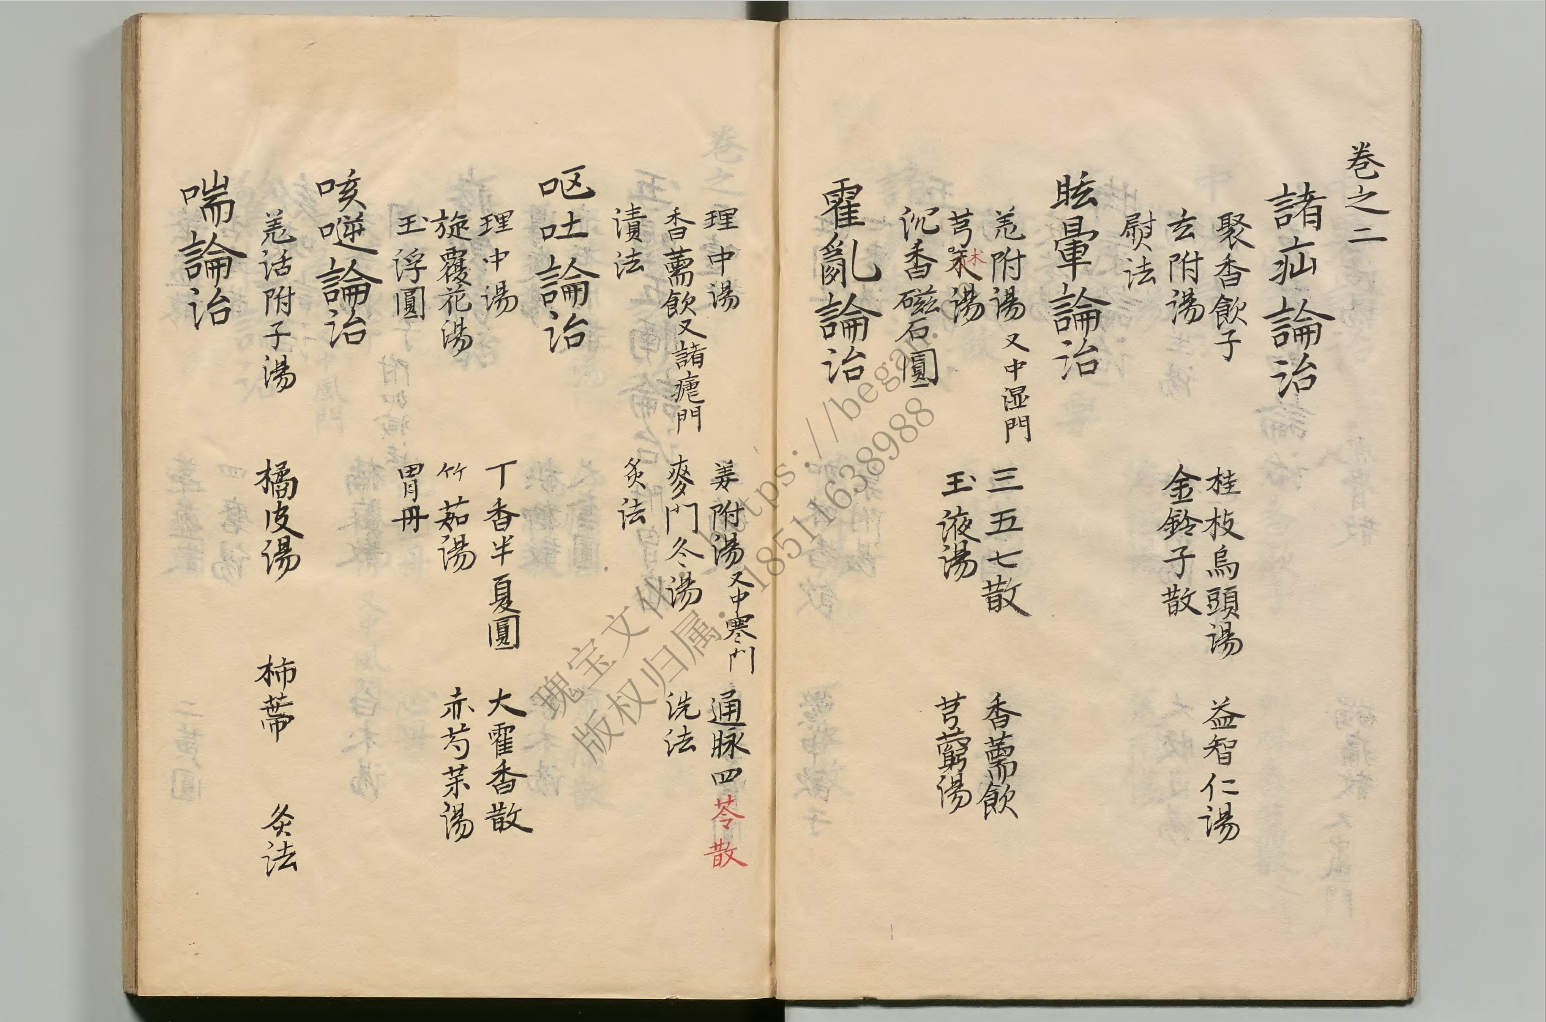 卷之二
諸疝論治
聚香飲子 桂枝烏頭湯 益智仁湯
玄附湯 金鈴子散
熨法
眩暈論治
羗附湯又中湿門 三五七散 香薷飲
芎朮湯 玉液湯 芎藭湯
沉香磁石圓
霍亂論治
理中湯 姜附湯又中寒門 通脉四苓散
香薷飲又諸瘧門 麥門冬湯 洗法
漬法 炙法
呕吐論治
理中湯 丁香半夏圓 大霍香散
旋覆花湯 竹茹湯 赤芍茱湯
玉浮圓 胃丹
咳逆論治
羗活附子湯 橘皮湯 柿蒂 灸法
喘論治
瑰宝文化：https://began.
版权归属：18511638988